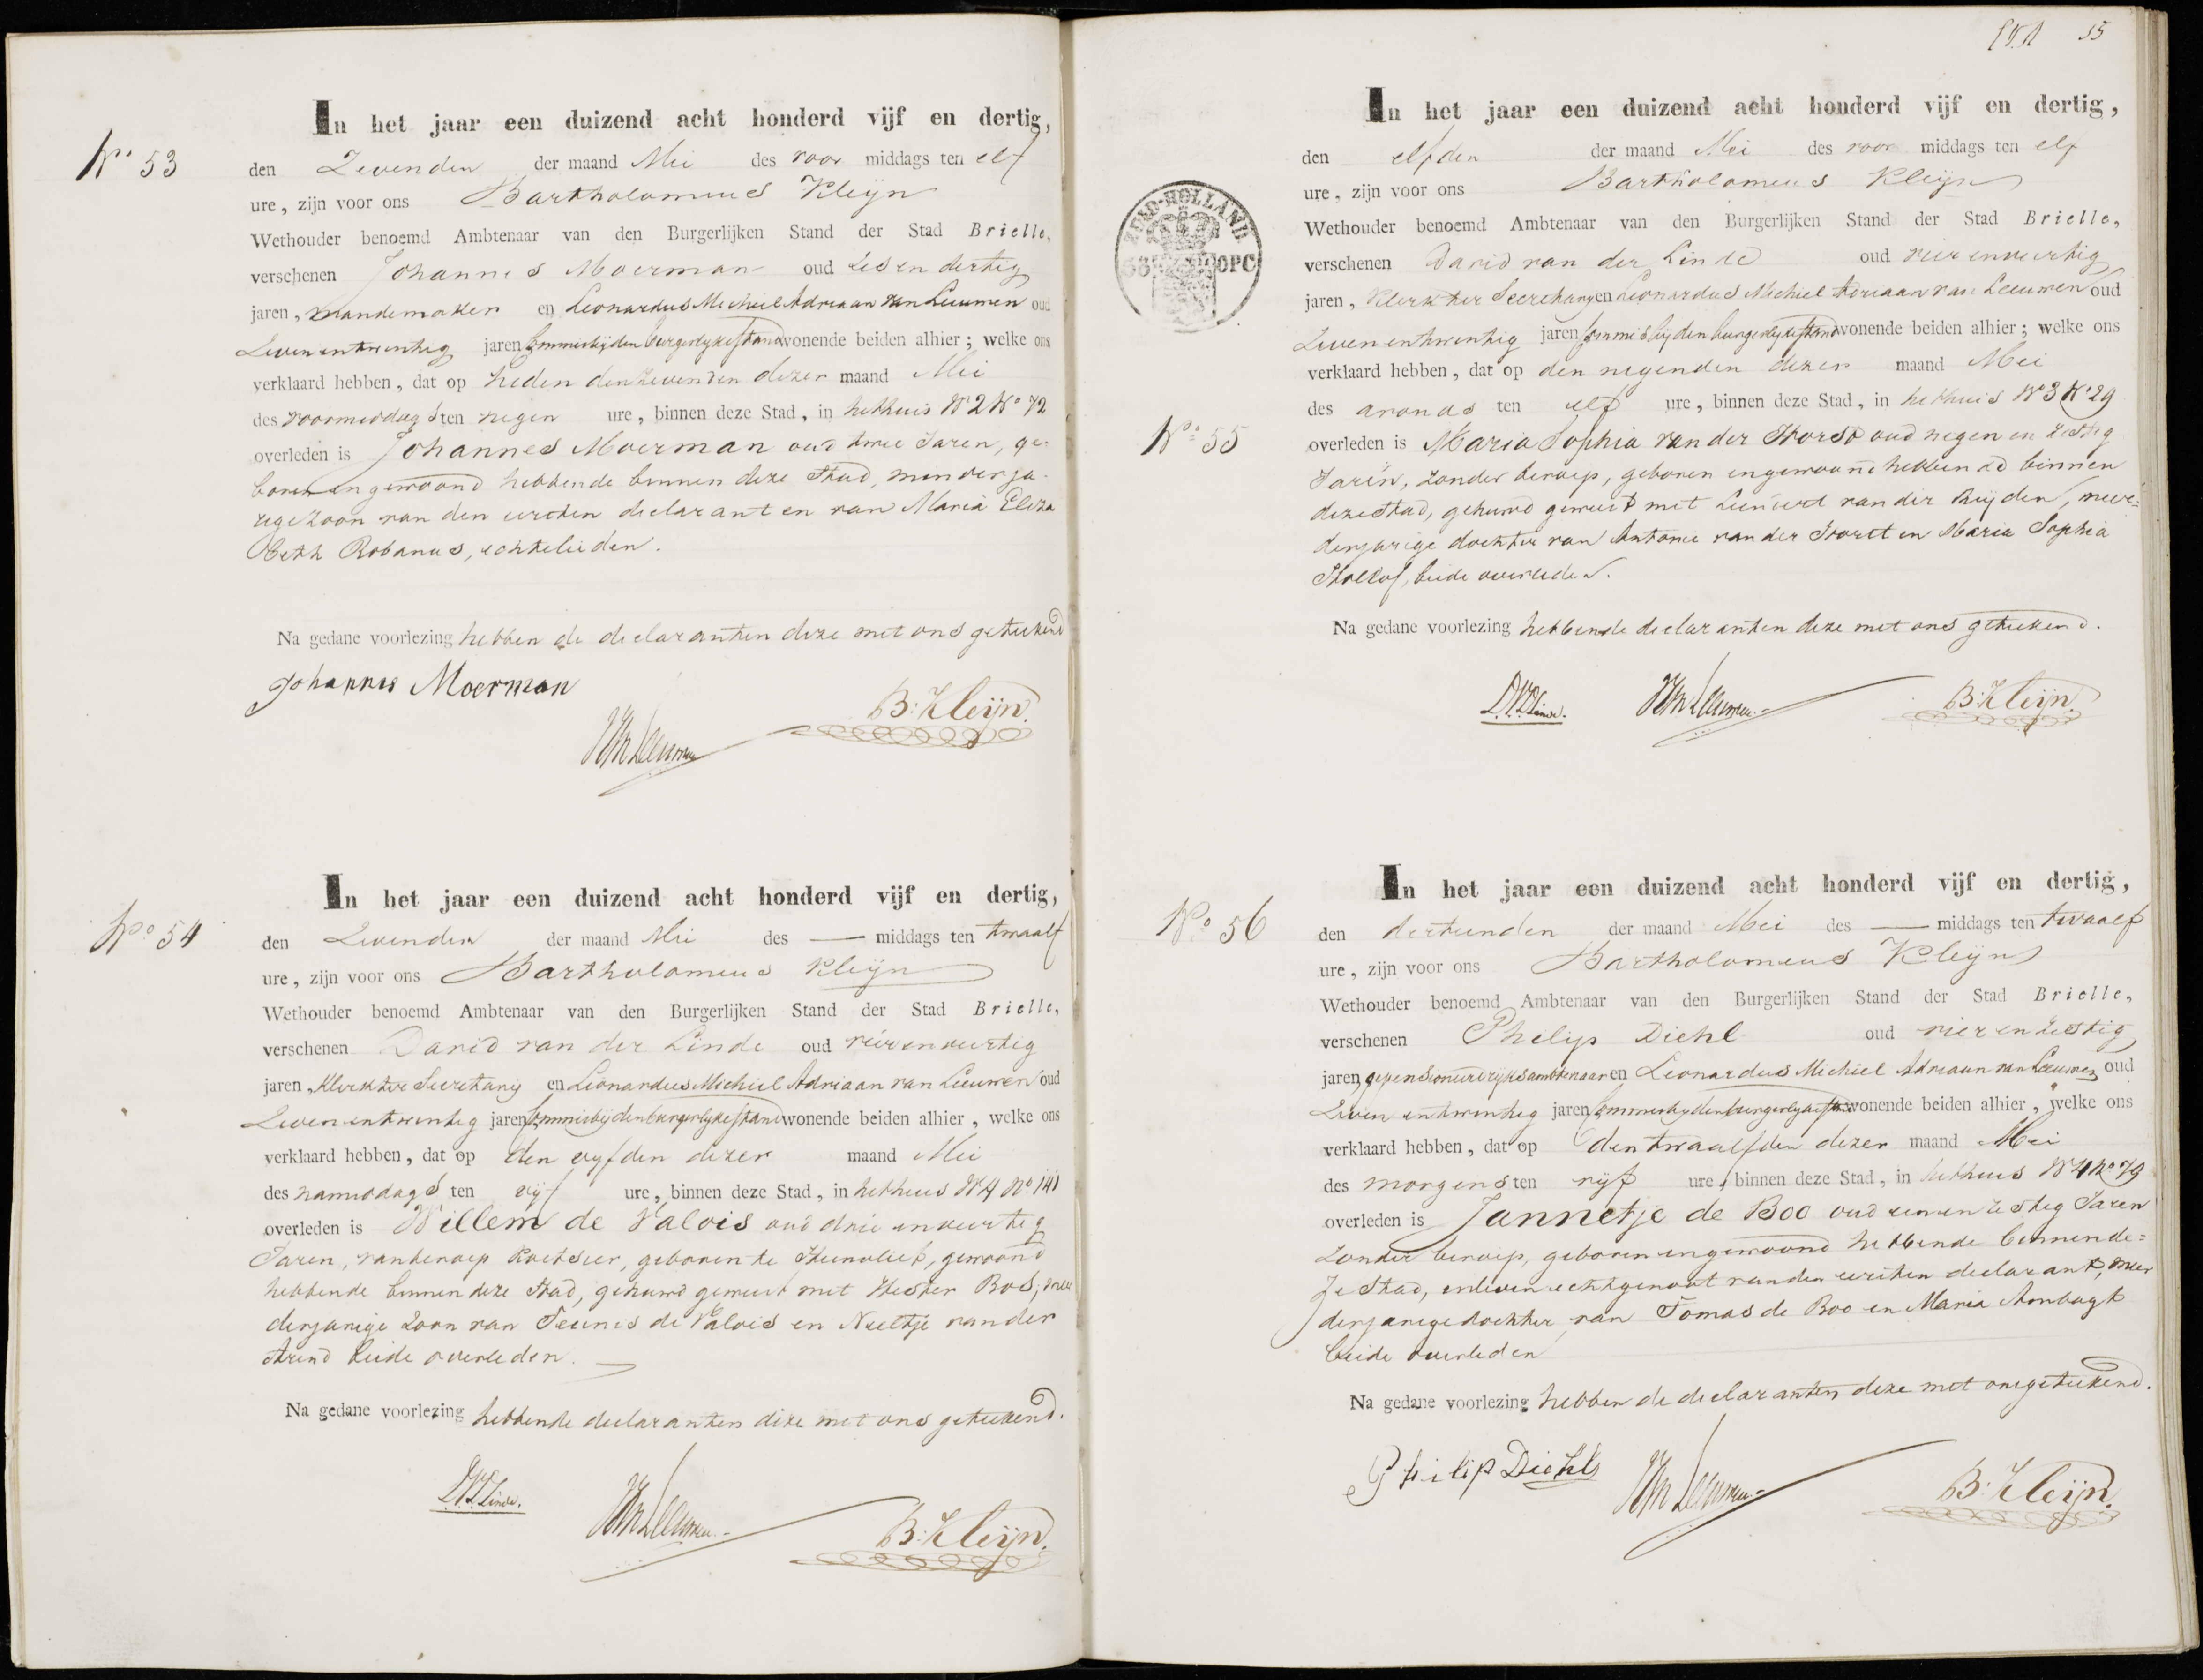 No 53
In het jaar een duizend acht honderd vijf en dertig,
den Zevenden der maand Mei des voor middags ten elf
ure, zijn voor ons Bartholomeus Kleijn
Wethouder benoemd Ambtenaar van den Burgerlijken Stand der Stad Brielle,
verschenen Johannes Moerman oud zes en dertig
jaren, mandemaker en Leonardus Michiel Adriaan van Leeuwen oud
Zeven en twintig jaren Commis bij den burgerlyke stand wonende beiden alhier; welke ons
verklaard hebben, dat op heden den zevenden dezer maand Mei
des voormiddags ten negen ure, binnen deze Stad, in het huis W 2 No 72
overleden is Johannes Moerman oud twee Jaren, ge-
boren en gewoond hebbende binnen deze Stad, minderja-
rige Zoon van den eersten declarant en van Maria Eliza
beth Robanus, echtelieden.
Na gedane voorlezing hebben de declaranten deze met ons geteekend
Johannes Moerman
B: Kleijn.
No 54
In het jaar een duizend acht honderd vijf en dertig,
den Zevenden der maand Mei des — middags ten twaalf
ure, zijn voor ons Bartholomeus Kleijn
Wethouder benoemd Ambtenaar van den Burgerlijken Stand der Stad Brielle,
verschenen David van der Linde oud vier en veertig
jaren, Klerk ter Secretary en Leonardus Michiel Adriaan van Leeuwen oud
Zeven en twintig jaren Commis bij den burgerlyke stand wonende beiden alhier, welke ons
verklaard hebben, dat op den vyfden dezer maand Mei
des namiddags ten vijf ure, binnen deze Stad, in het huis W 4 No 141
overleden is Willem de Valois oud drie en veertig
Jaren, van beroep Koetsier, geboren te Heenvliet, gewoond
hebbende binnen deze Stad, gehuwd geweest met Hester Bos, meer
derjarige Zoon van Teunis de Valois en Neeltje van der
Arend beide overleden.
Na gedane voorlezing hebbende declaranten deze met ons geteekend.
B: Kleijn.
55
ZUID-HOLLAND
OPC
No 55
In het jaar een duizend acht honderd vijf en dertig,
den elfden der maand Mei des voor middags ten elf
ure, zijn voor ons Bartholomeus Kleijn
Wethouder benoemd Ambtenaar van den Burgerlijken Stand der Stad Brielle,
verschenen David van der Linde oud vier en veertig
jaren, Klerk ter Secretary en Leonardus Michiel Adriaan van Leeuwen oud
Zeven en twintig jaren Commis bij den burgerlyke stand wonende beiden alhier; welke ons
verklaard hebben, dat op den negenden dezer maand Mei
des avonds ten elf ure, binnen deze Stad, in het huis W 3 No 29
overleden is Maria Sophia van der Horst oud negen en zestig
Jaren, zonder beroep, geboren en gewoond hebbende binnen
deze Stad, gehuwd geweest met Leendert van der, meer-
derjarige dochter van Antonie van der Horst en Maria Sophia
beide overleden.
Na gedane voorlezing hebbende declaranten deze met ons geteekend.
B: Kleijn.
No 56
In het jaar een duizend acht honderd vijf en dertig,
den dertienden der maand Mei des — middags ten twaalf
ure, zijn voor ons Bartholomeus Kleijn
Wethouder benoemd Ambtenaar van den Burgerlijken Stand der Stad Brielle,
verschenen Philip Diehl oud vier en zestig
jaren gepensioneerd rijksambtenaar en Leonardus Michiel Adriaan van Leeuwen oud
Zeven en twintig jaren Commis bij den burgerlyke stand wonende beiden alhier, welke ons
verklaard hebben, dat op den twaalfden dezer maand Mei
des morgens ten vijf ure, binnen deze Stad, in het huis W 4 No 79
overleden is Jannetje de Boo oud een en zestig Jaren
zonder beroep, geboren en gewoond hebbende binnen de=
ze Stad, in leven echtgenoot van den eersten declarant, meer
derjarige dochter van Tomas de Boo en Maria Ambagt
beide overleden
Na gedane voorlezing hebben de declaranten deze met ons geteekend.
Philip Diehl
B: Kleijn.